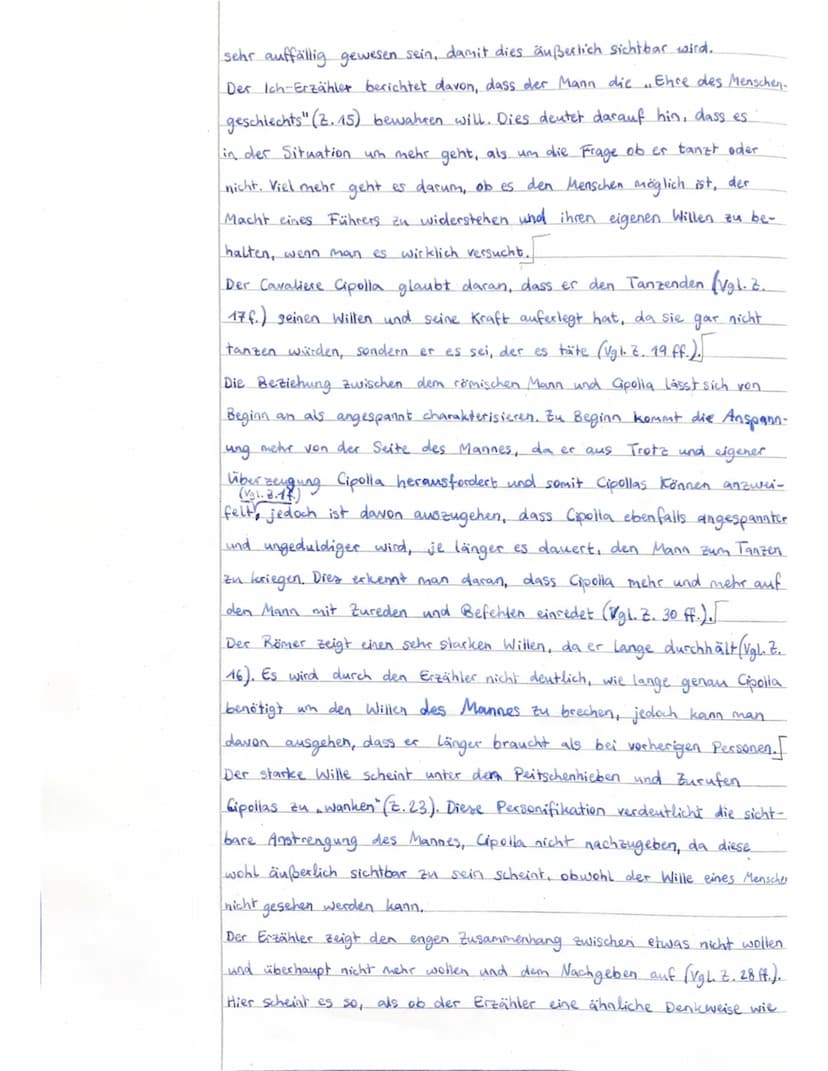 sehr auffällig gewesen sein, damit dies äußerlich sichtbar wird.
Der Ich-Erzähler berichtet davon, dass der Mann die „Ehre des Menschen-
geschlechts" (Z. 15) bewahren will. Dies deutet darauf hin, dass es
in der Situation um mehr geht, als um die Frage ob er tanzt oder
nicht. Viel mehr geht es darum, ob es den Menschen möglich ist, der
Macht eines Führers zu widerstehen und ihren eigenen Willen zu be-
halten, wenn man es wirklich versucht.
Der Cavaliere Cipolla glaubt daran, dass er den Tanzenden (Vgl. Z.
17f.) seinen Willen und seine Kraft auferlegt hat, da sie gar nicht
tanzen würden, sondern er es sei, der es täte (Vgl. Z. 19 ff.).
Die Beziehung zwischen dem römischen Mann und Cipolla lässt sich von
Beginn an als angespannt charakterisieren. Zu Beginn kommt die Anspann-
ung mehr von der Seite des Mannes, da er aus Trotz und eigener
Überzeugung Cipolla herausfordert und somit Cipollas Können anzwei-
(Vgl. Z. 1f.)
felt, jedoch ist davon auszugehen, dass Cipolla ebenfalls angespannter
und ungeduldiger wird, je länger es dauert, den Mann zum Tanzen
zu kriegen. Dies erkennt man daran, dass Cipolla mehr und mehr auf
den Mann mit Zureden und Befehlen einredet (Vgl. Z. 30 ff.).
Der Römer zeigt einen sehr starken Willen, da er lange durchhält (Vgl. Z.
16). Es wird durch den Erzähler nicht deutlich, wie lange genau Cipolla
benötigt um den Willen des Mannes zu brechen, jedoch kann man
davon ausgehen, dass er länger braucht als bei vorherigen Personen.
Der starke Wille scheint unter den Peitschenhieben und Zurufen
Cipollas zu „wanken" (Z. 23). Diese Personifikation verdeutlicht die sicht-
bare Anstrengung des Mannes, Cipolla nicht nachzugeben, da diese
wohl äußerlich sichtbar zu sein scheint, obwohl der Wille eines Menschen
nicht gesehen werden kann.
Der Erzähler zeigt den engen Zusammenhang zwischen etwas nicht wollen
und überhaupt nicht mehr wollen und dem Nachgeben auf (Vgl. Z. 28 ff.).
Hier scheint es so, als ob der Erzähler eine ähnliche Denkweise wie